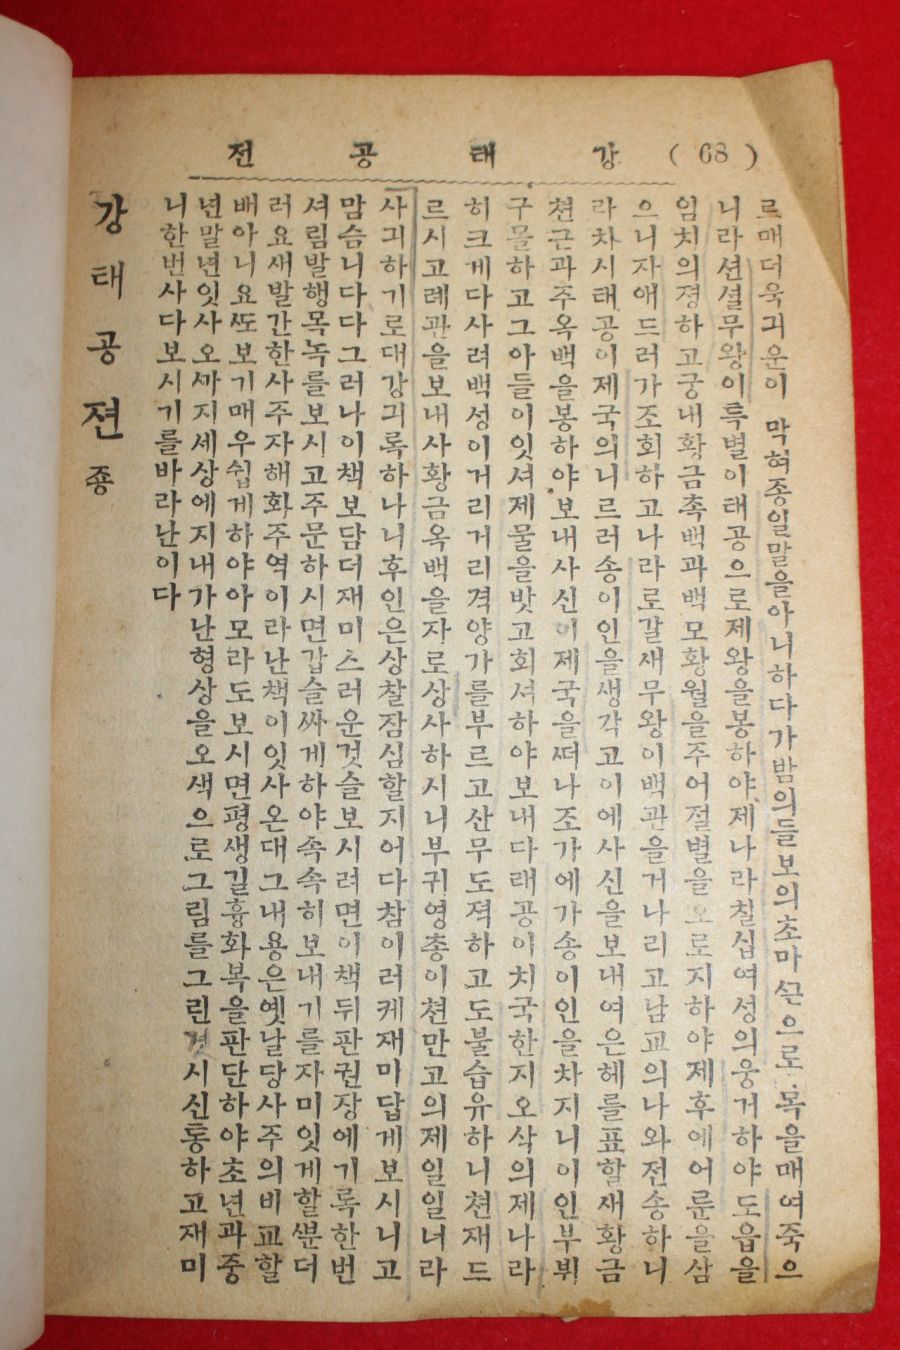 (68) 강태공전
르매더욱긔운이 막혀종일말을아니하다가밤의들보의초마은으로목을매여죽으
니라션셜무왕이특별이태공으로제왕을봉하야제나라칠십여성의웅거하야도읍을
임치의졍하고궁내황금촉백과백모황월을주어절별을오로지하야제후에어룬을삼
으니자애드러가조회하고나라로갈새무왕이백관을거나리고남교의나와전송하니
라차시태공이제국의니르러송이인을생각고이에사신을보내여은혜를표할새황금
쳔근과주옥백을봉하야보내사신이제국을떠나조가에가송이인을차지니이인부뷔
구몰하고그아들이잇셔제물을밧고회셔하야보내다래공이치국한지오삭의제나라
히크게다사려백성이거리거리격양가를부르고산무도젹하고도불습유하니쳔재드
르시고례관을보내사황금옥백을자로상사하시니부귀영총이쳔만고의제일일너라
사긔하기로대강긔록하나니후인은상찰잠심할지어다참이러케재마답게보시니고
맘슴니다그러나이책보담더재미스러운것슬보시려면이책뒤판권장에기록한번
셔림발행목녹를보시고주문하시면갑슬싸게하야속속히보내기를자미잇게할뿐더
러요새발간한사주자해화주역이라난책이잇사온대그내용은옛날당사주의비교할
배아니요또보기매우쉽게하야아모라도보시면평생길흉화복을판단하야초년과중
년말년잇사오까지세상에지내가난형상을오색으로그림를그린것시신통하고재미
니한번사다보시기를바라난이다
강태공젼죵